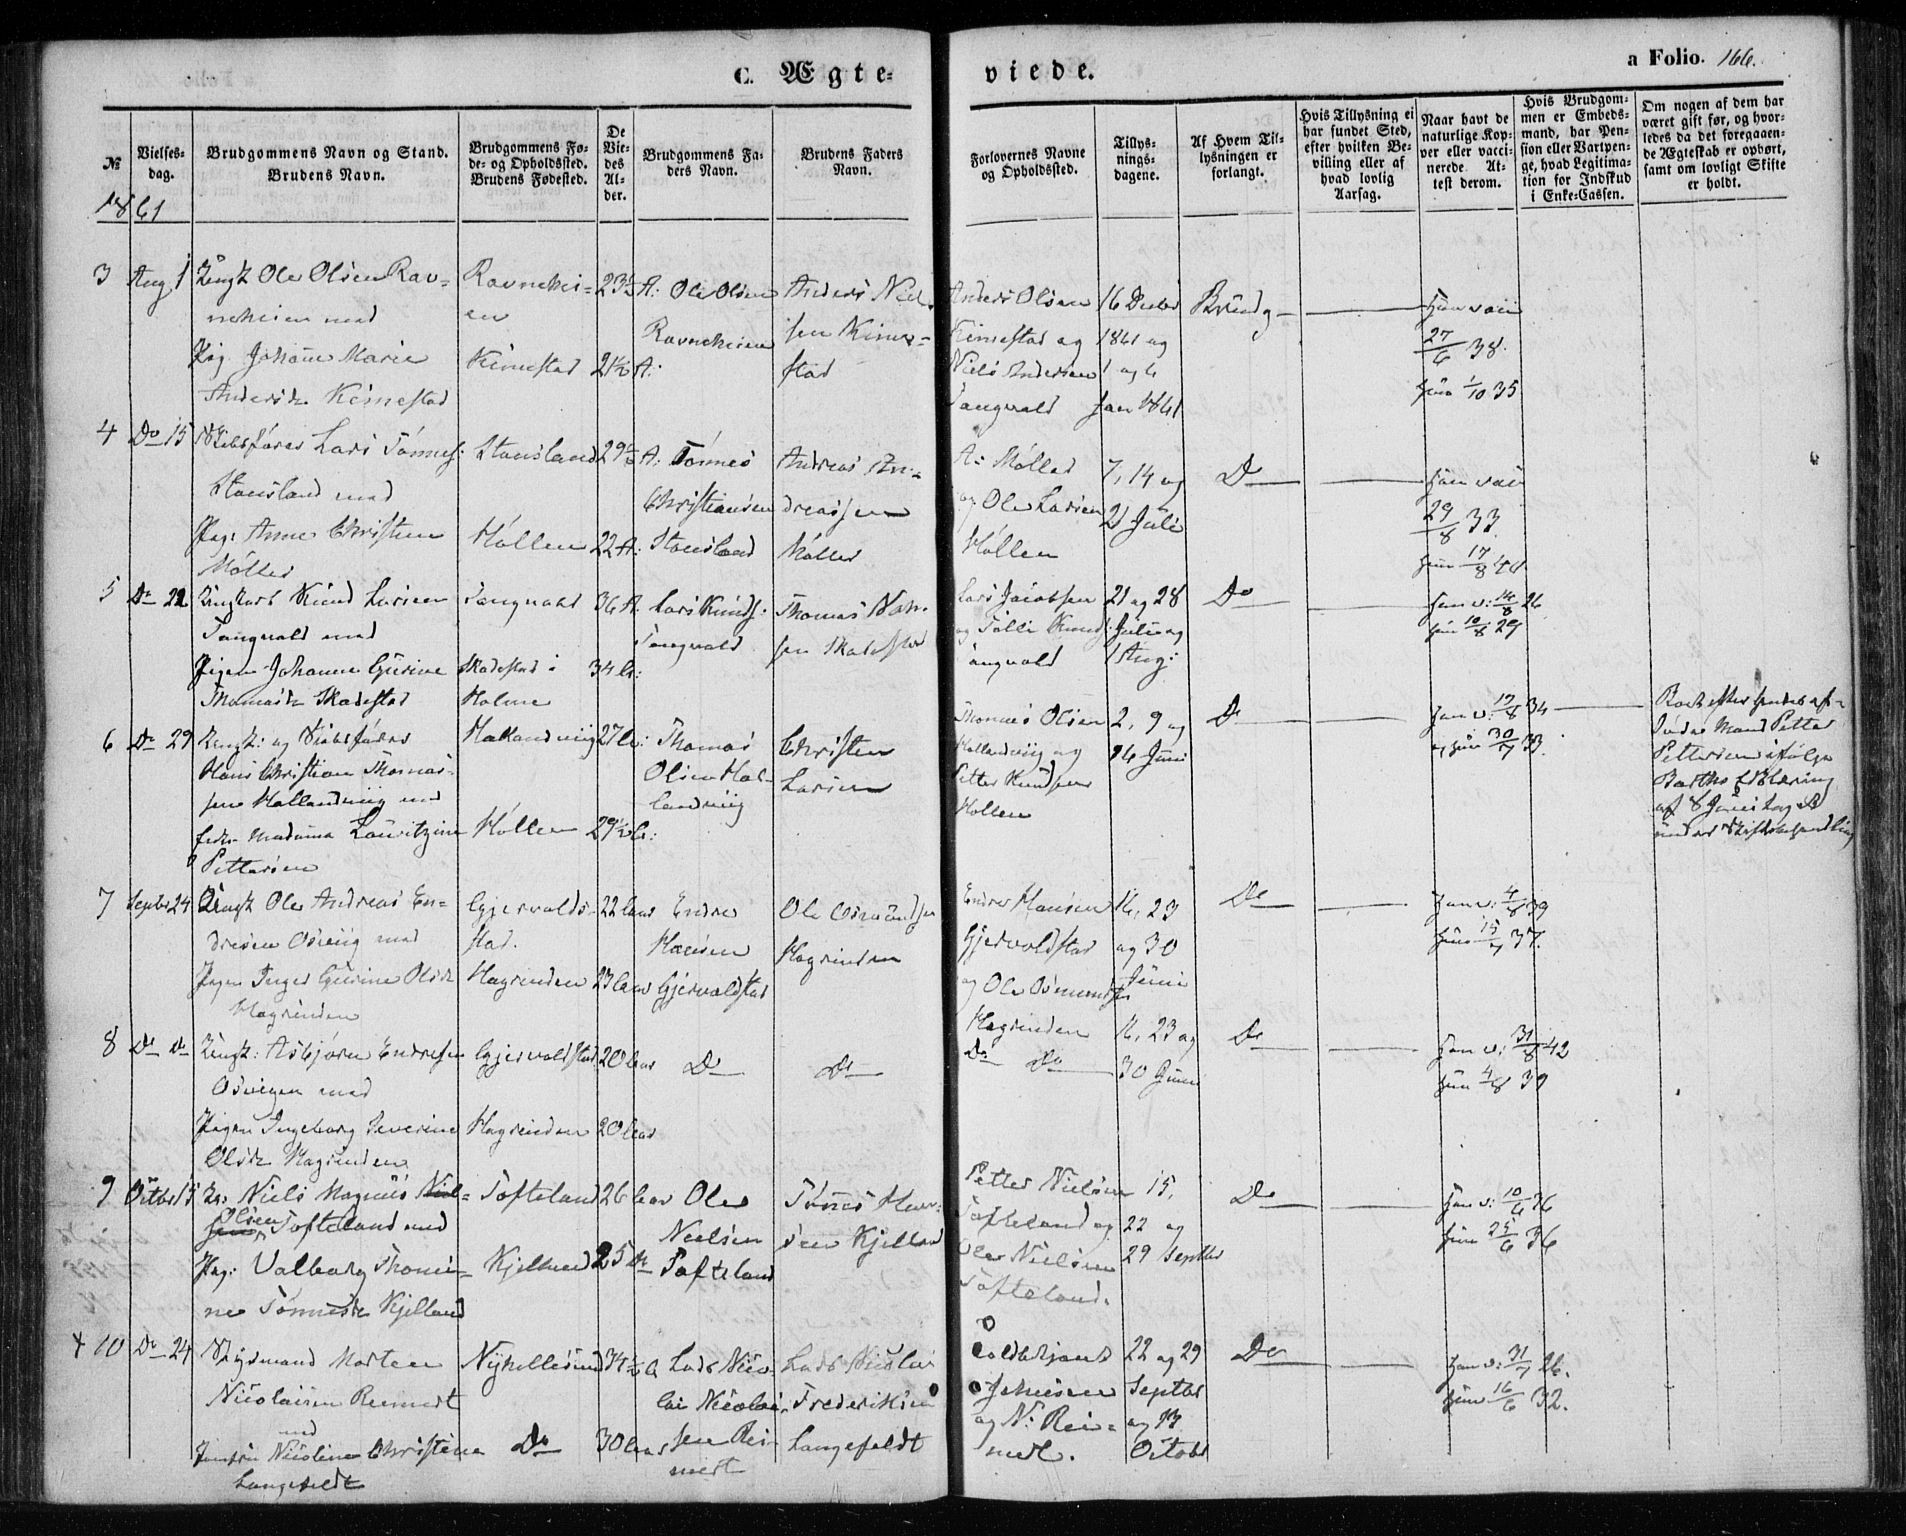 C. Ægte-
viede.
a Folio. 166.
№
Vielses-
dag.
Brudgommens Navn og Stand.
Brudens Navn.
Brudgommens Fø-
de- og Opholdssted.
Brudens Fødested.
De
Vie-
des
Al-
der.
Brudgommens Fa-
ders Navn.
Brudens Faders
Navn.
Forlovernes Navne
og Opholdssted.
Tillys-
nings-
dagene.
Af Hvem Til-
lysningen er
forlangt.
Hvis Tillysning ei
har fundet Sted,
efter hvilken Be-
villing eller af
hvad lovlig
Aarsag.
Naar havt de
naturlige Kop-
per eller vacci-
nerede At-
test derom.
Hvis Brudgom-
men er Embeds-
mand, har Pen-
sion eller Vartpen-
ge, hvad Legitima-
tion for Indskud
i Enke-Cassen.
Om nogen af dem har
været gift før, og hvor-
ledes da det foregaaen-
de Ægteskab er ophørt,
samt om lovligt Skifte
er holdt.
1861
3 Aug 1
Ungk Ole Olsen Rav-
neheien med
Pig. Johanne Marie
Andersd. Keimestad
Ravnehei-
en
Keimestad
23½ A:
21½ A:
Ole Olsen
Ravneheien
Anders Niel-
sen Kime-
stad
Anders Olsen
Keimestad og
Niels Andersen
Tangvald
16 Decbr
1861 og
1 og 6
Jan 1861
Brudg
Han vac
27/6 38.
Hun 1/10 35
4 Do 15
Skibsfører Lars Tønnes:
Stousland med
Pige: Anne Christine
Møller
Stousland
Høllen
29½ A:
22 A:
Tønnes
Christiansen
Stousland
Andreas An-
dreassen
Møller
A: Møller
og Ole Larsen
Høllen
7, 14 og
21 Juli
Do
Han vac
29/8 33
Hun 17/8 40
5 Do 22
Ungkarl Knud Larsen
Tangvald med
Pigen Johanne Gurine
Thomasd. Skadestad
Tangvald
Skadestad i
Holme
36 A.
34 A:
Lars Knuds:
Tangvald
Thomas
sen Skadestad
Lars Jacobsen
og Tolli Knuds:
Tangvald
21 og 28
Juli og
1 Aug:
Do
Han v: 14/8 26
Hun 10/8 29
6 Do 29
Ungk: og Skibsfører
Hans Christian Thomas-
sen Hallandviig med
Enke Madame Lauritzine
Pettersen
Hallandviig
Høllen
27 A:
29½ A:
Thomas
Olsen Hal-
landviig
Christen
Larsen
Thomas Olsen
Hallandviig og
Petter Knudsen
Høllen
2, 9 og
16 Juni
Do
Han v: 19/8 34
og Hun 30/7 33.
Mand Petter
Pettersen ifølge
Erklæring
af 8 Juni
under Skiftebehandling
7 Septbr 24
Ungk Ole Andreas En-
dresen Osviig med
Pigen Inger Gurine Olsd.
Hagrinden
Gjervolds-
stad.
Hagrinden
22 Aar
23 Aar
Endre
Hansen
Gjervoldstad
Ole Osmundsen
Hagrinden
Endre Hansen
Gjervoldstad
og Ole Osmundsen
Hagrinden
16, 23
og 30
Juni
Do
Han v: 4/8 39
Hun 15/7 37.
8 Do Do
Ungk: Asbjørn Endresen
Osvigen med
Pigen Ingeborg Severine
Olsd. Hagrinden
Gjervoldstad
Hagrinden
20 Aar
20 Aar
Do
Do
Do Do
16, 23 og
30 Juni
Do
Han v: 31/8 42
Hun 4/8 39
9 Octbr 15
Niels Magnus Niel-
sen Olsen Tofteland med
Pig: Valborg Thomi-
ne Tønnesd. Kjelland
Tofteland
Kjelland
26 Aar
25 Do
Ole
Nielsen
Tofteland
Tønnes
sen Kjelland
Petter Nielsen
Tofteland og
Ole Nielsen
Tofteland.
15,
22 og
29 Septbr
Do
Han v: 10/6 36
Hun 25/6 36
+ 10 Do 24
Morten
Nicolaisen Reimert
med
Jomfru Nicoline Christine
Langefeldt
Nyhellesund
Do
34½ A
30 Aar
Lars Nico-
lai Nicolai-
sen Rei-
mert
Lars Nicolai
Frederiksen
Langefeldt
Johnsen
og N: Rei-
mert.
22 og 29
Septbr
og 13
Octobr
Do
Han v: 31/7 26.
Hun 16/6 32.